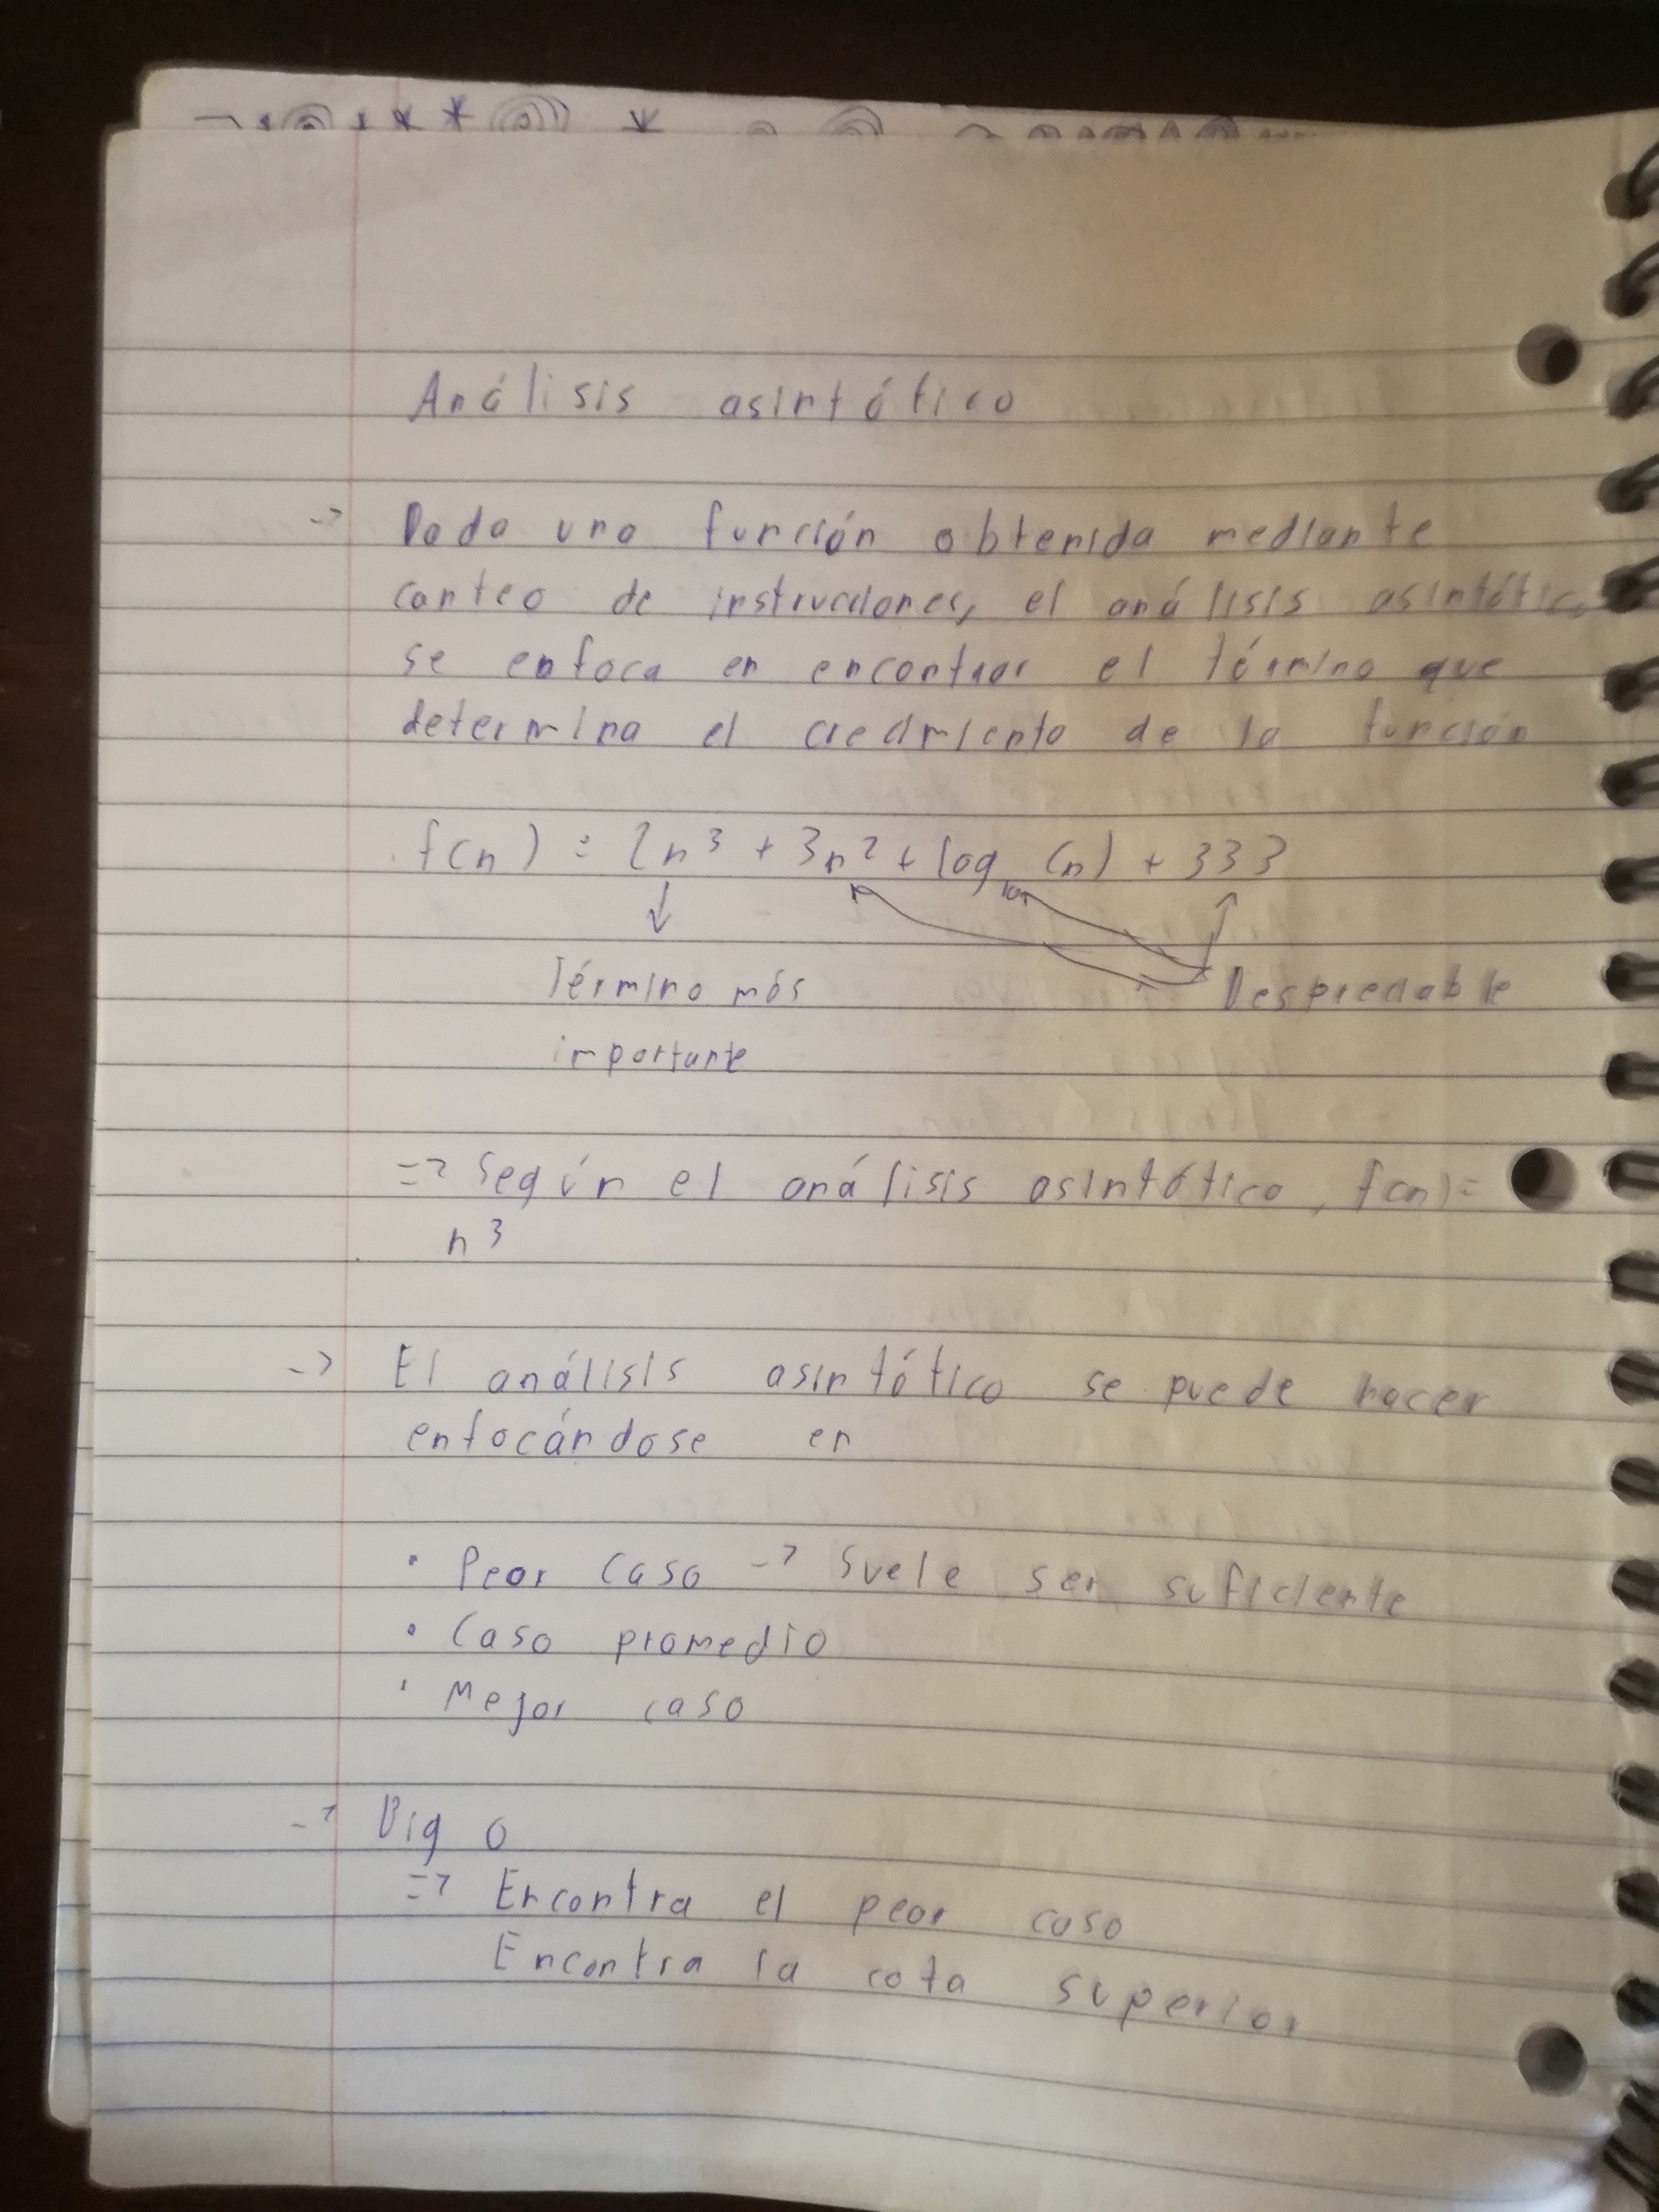 Análisis asintótico
-> Dada una función obtenida mediante
conteo de instrucciones, el análisis asintótico
se enfoca en encontrar el término que
determina el crecimiento de la función
f(n) = 2n³ + 3n² + log (n) + 333
Término más
Despreciable
importante
=> Según el análisis asintótico, f(n) =
n³
-> El análisis asintótico se puede hacer
enfocándose en
• Peor caso -> Suele ser suficiente
• Caso promedio
• Mejor caso
-> Big O
=> Encontra el peor caso
Encontra la cota superior